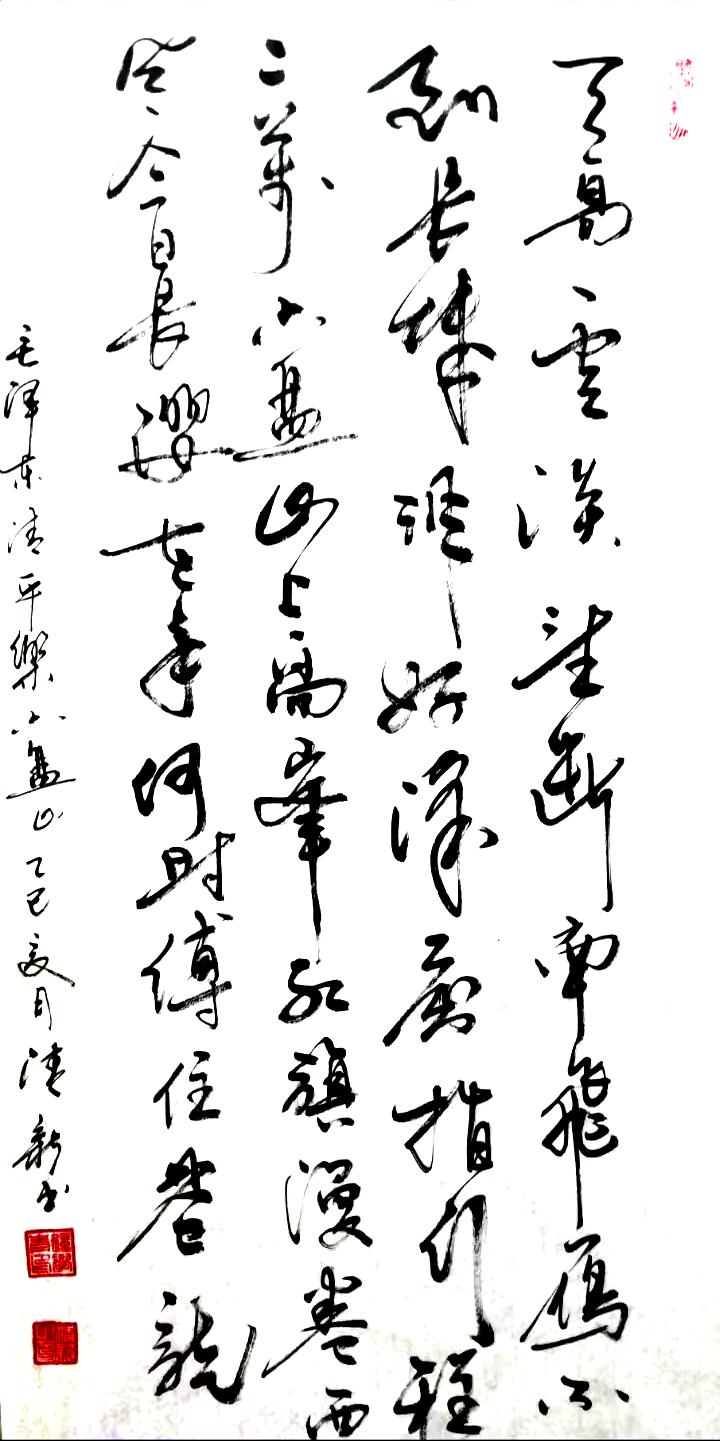 天高雲淡望斷南飛雁不
到長城非好漢屈指行程
二萬六盤山上高峯紅旗漫卷西
風今日長纓在手何時縛住蒼龍
毛澤東清平樂六盤山乙巳夏月清新书